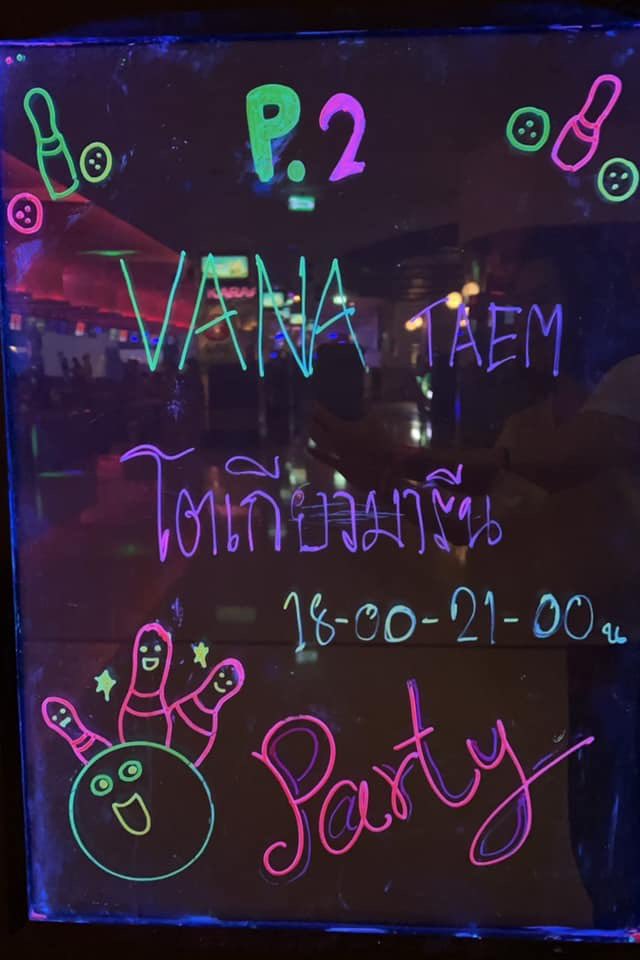 P.2
VANA TAEM
โตเกียวมารีน
18-00-21-00 น
Party